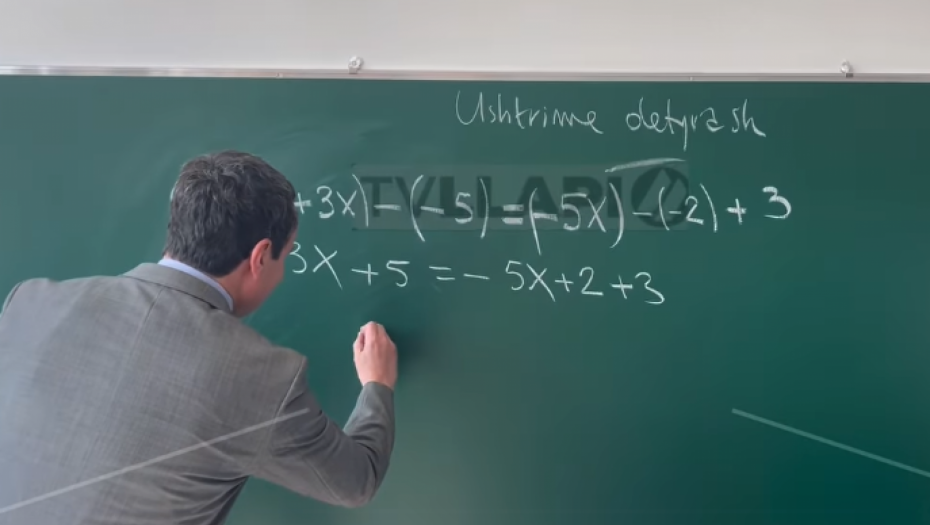 Ushtrime detyrash
TYLLARI
+3x) - (-5) = (-5x) - (-2) + 3
3x + 5 = - 5x + 2 + 3